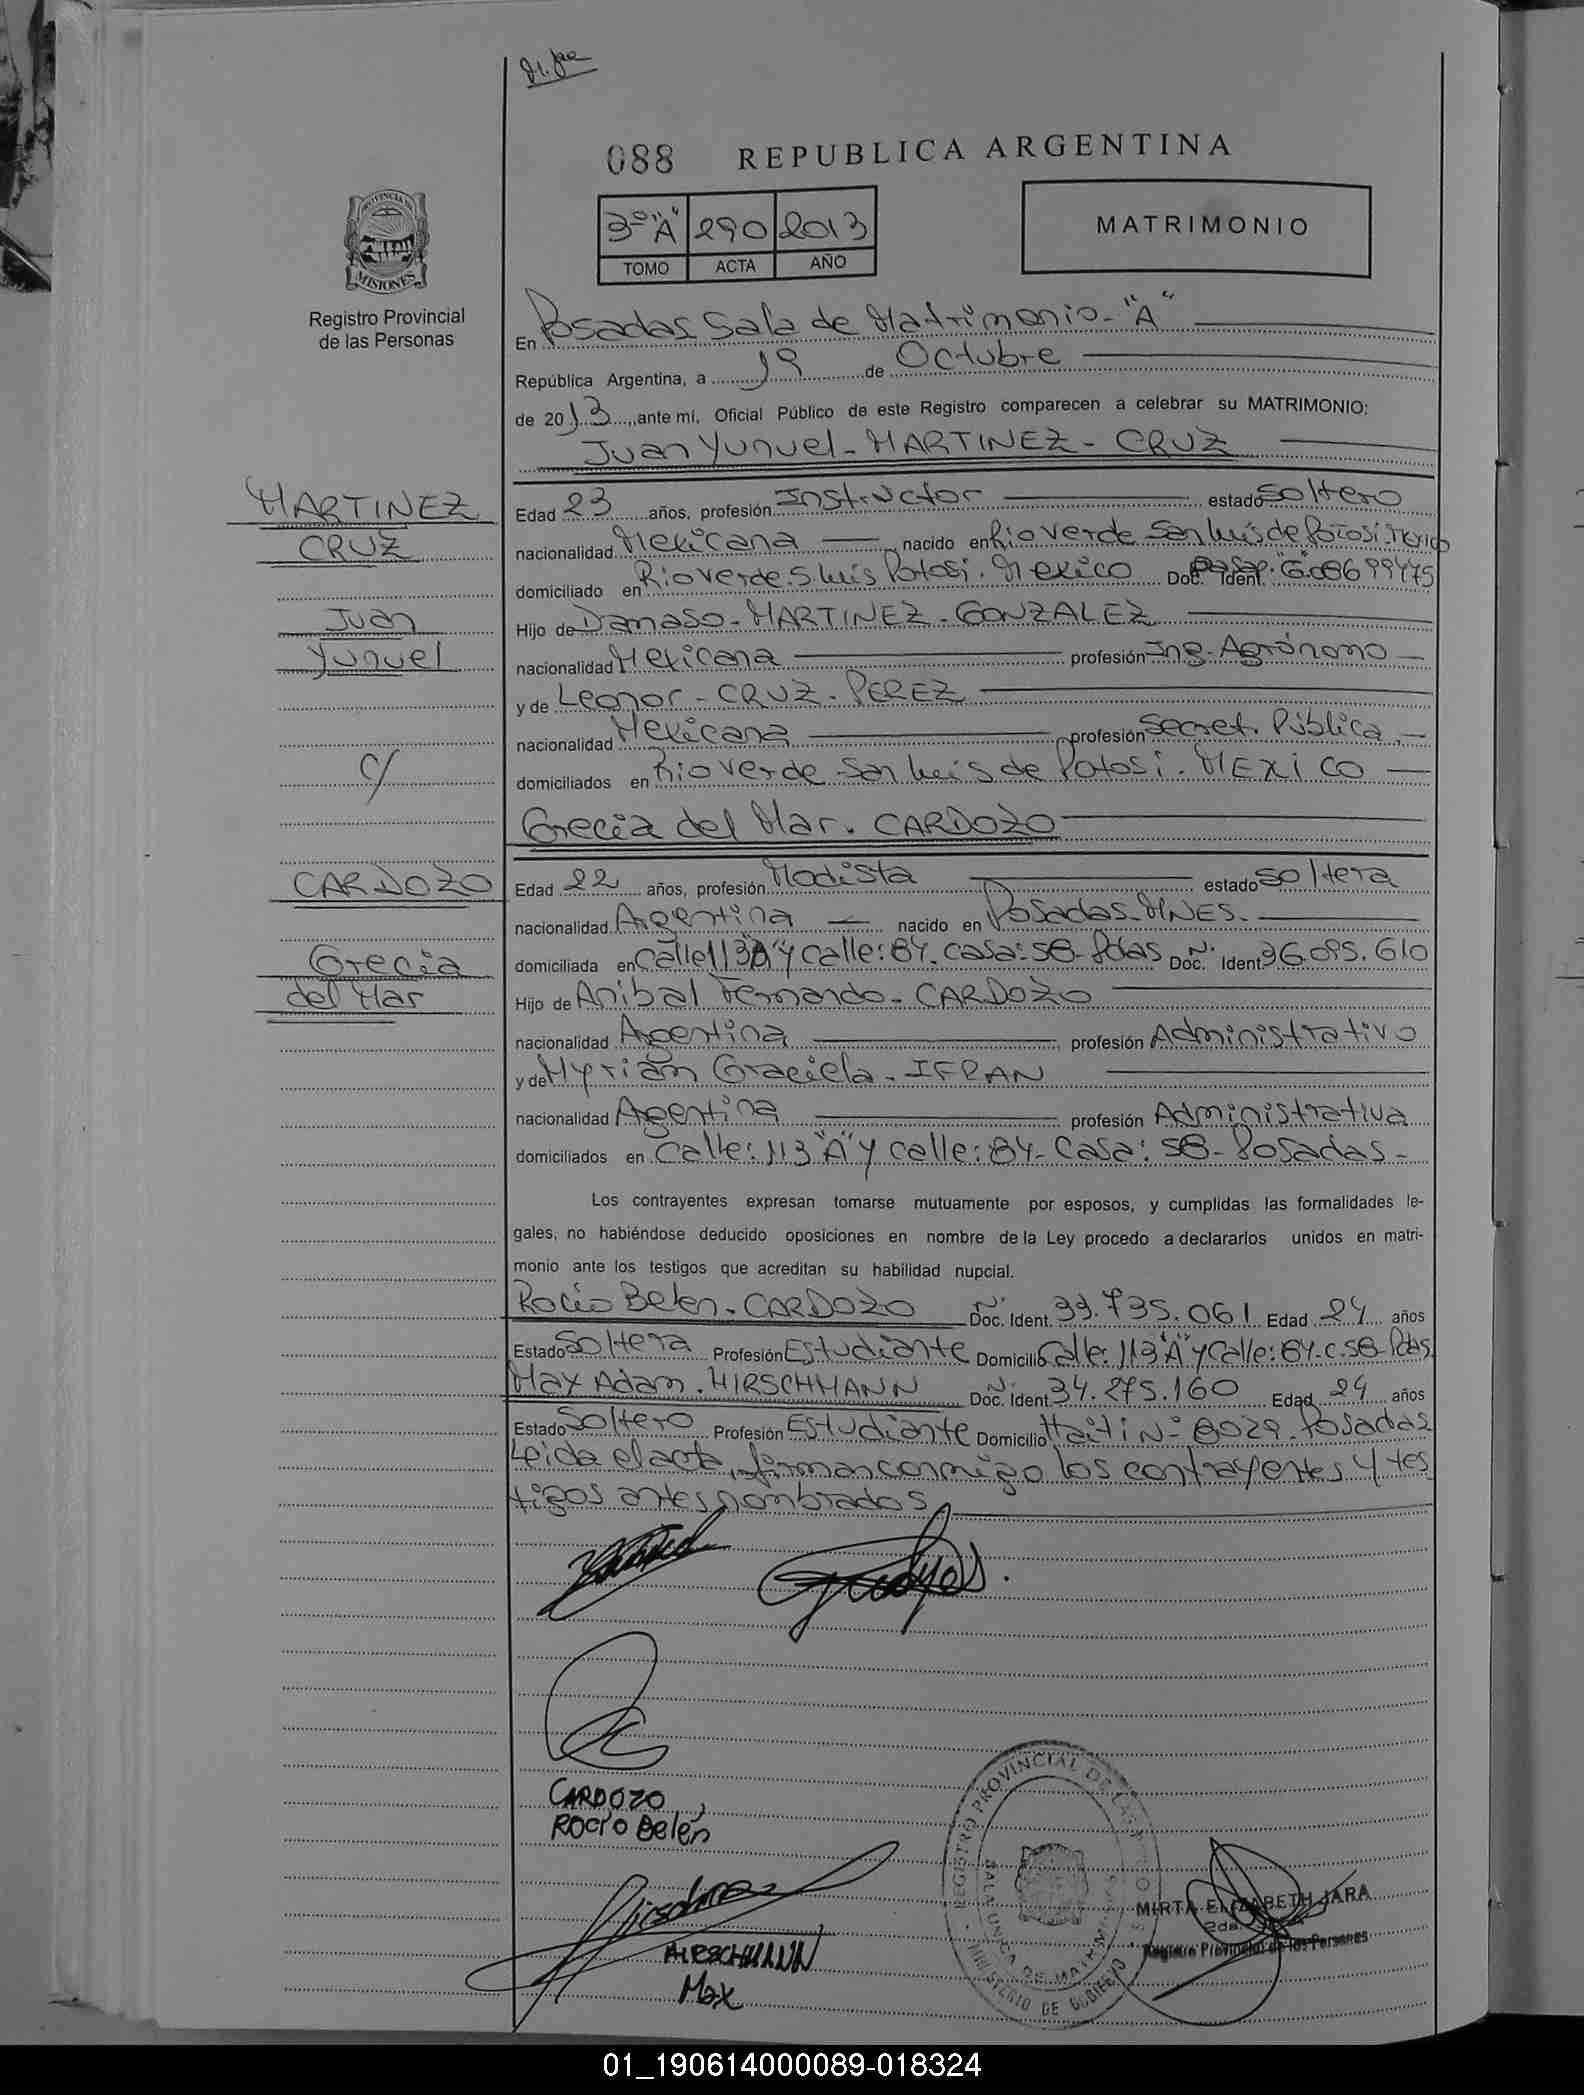 088 REPUBLICA ARGENTINA
PROVINCIA DE
MISIONES
Registro Provincial
de las Personas
3º"A" 290 2013
TOMO ACTA AÑO
MATRIMONIO
En Posadas Sala de Matrimonio-"A"
República Argentina, a 19 de Octubre
de 2013, ante mí, Oficial Público de este Registro comparecen a celebrar su MATRIMONIO:
Juan Yunuel-MARTINEZ-CRUZ
MARTINEZ
CRUZ
Juan
Yunuel
c/
CARDOZO
Grecia
del Mar
Edad 23 años, profesión Instructor estado Soltero
nacionalidad Mexicana nacido en Rio Verde San Luis de Potosi.Mexico
domiciliado en Rio Verde.S.Luis Potosi.Mexico Doc. Ident. Pasap."G"08699475
Hijo de Damaso-MARTINEZ-GONZALEZ
nacionalidad Mexicana profesión Ing-Agrónomo
y de Leonor-CRUZ-PEREZ
nacionalidad Mexicana profesión Secret. Pública
domiciliados en Rio Verde-San Luis de Potosi.MEXICO
Grecia del Mar.CARDOZO
Edad 22 años, profesión Modista estado Soltera
nacionalidad Argentina nacido en Posadas-MNES-
domiciliada en Calle 113"A" y Calle:84-Casa:58-Pdas Doc. Ident Nº 36.095.610
Hijo de Anibal Fernando-CARDOZO
nacionalidad Argentina profesión Administrativo
y de Myriam Graciela-IFRAN
nacionalidad Argentina profesión Administrativa
domiciliados en Calle:113"A" y Calle:84-Casa:58-Posadas-
Los contrayentes expresan tomarse mutuamente por esposos, y cumplidas las formalidades le-
gales, no habiéndose deducido oposiciones en nombre de la Ley procedo a declararlos unidos en matri-
monio ante los testigos que acreditan su habilidad nupcial.
Rocio Belen-CARDOZO Doc. Ident. Nº 33.735.061 Edad 24 años
Estado Soltera Profesión Estudiante Domicilio Calle:113"A" y Calle:84-C.58-Pdas
Max Adam.HIRSCHMANN Doc. Ident Nº 34.275.160 Edad 24 años
Estado Soltero Profesión Estudiante Domicilio Haiti Nº 8029-Posadas
Leida el acta, firman conmigo los contrayentes y tes
tigos antes nombrados
CARDOZO
ROCIO Belén
HIRSCHMANN
Max
REGISTRO PROVINCIAL DE LAS PERSONAS
SALA UNICA DE MATRIMONIOS
MINISTERIO DE GOBIERNO
MIRTA ELIZABETH JARA
Registro Provincial de las Personas
01_190614000089-018324